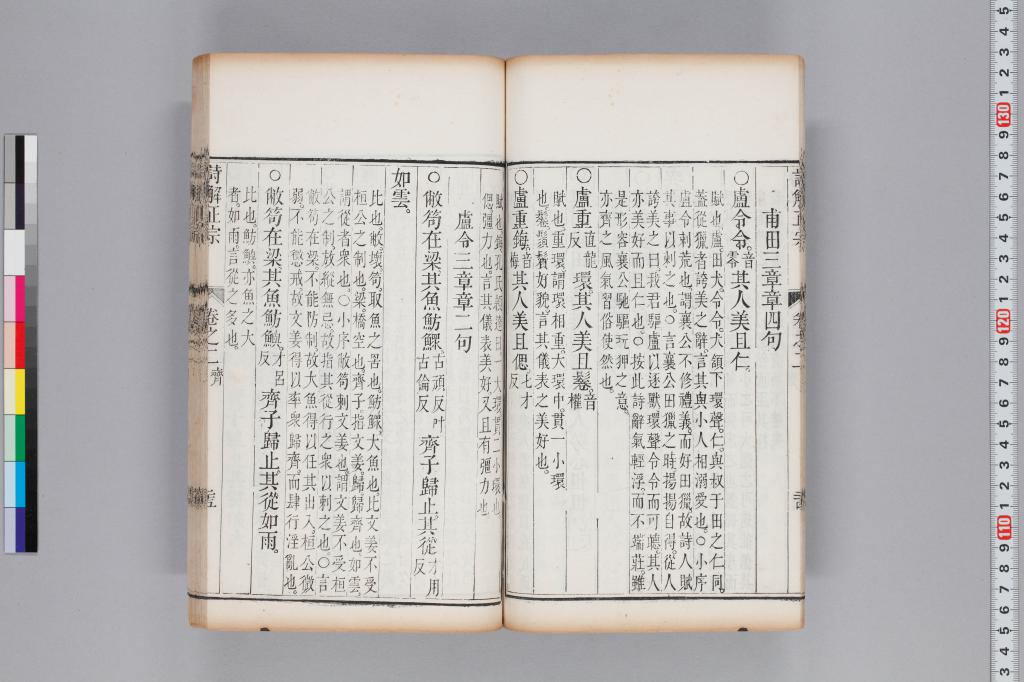 甫田三章章四句
○盧令令音零其人美且仁
賦也盧田犬令令犬頷下環聲仁與叔于田之仁同
蓋從獵者誇美之辭言其與小人相溺愛也○小序
盧令刺荒也謂襄公不修禮義而好田獵故詩人賦
其事以刺之也○言襄公田獵之時揚揚自得從人
誇美之曰我君驅盧以逐獸環聲令令而可聽其人
亦美好而且仁也○按此詩辭氣輕浮而不端莊雖
是形容襄公馳驅玩狎之意
亦齊之風氣習俗使然也
○盧重直龍反環其人美且鬈音權
賦也重環謂環相重大環中貫一小環
也鬈鬚鬢好貌言其儀表之美好也
○盧重鋂音梅其人美且偲七才反
賦也鋂孔氏穎達曰一大環貫二小環也
偲彊力也言其儀表美好又且有彊力也
盧令三章章二句
○敝笱在梁其魚魴鰥古頑反叶古倫反齊子歸止其從才用反
如雲
比也敝壞笱取魚之笱也魴鰥大魚也比文姜不受
桓公之制也梁橋空也齊子指文姜歸歸齊也如雲
謂從者衆也○小序敝笱刺文姜也謂文姜不受桓
公之制放縱無忌故指其從行之衆以刺之也○言
敝笱在梁不能防制故大魚得以任其出入桓公微
弱不能懲戒故文姜得以率衆歸齊而肆行淫亂也
○敝笱在梁其魚魴鱮才呂反齊子歸止其從如雨
比也魴鱮亦魚之大
者如雨言從之多也
詩解正宗　卷之二　齊